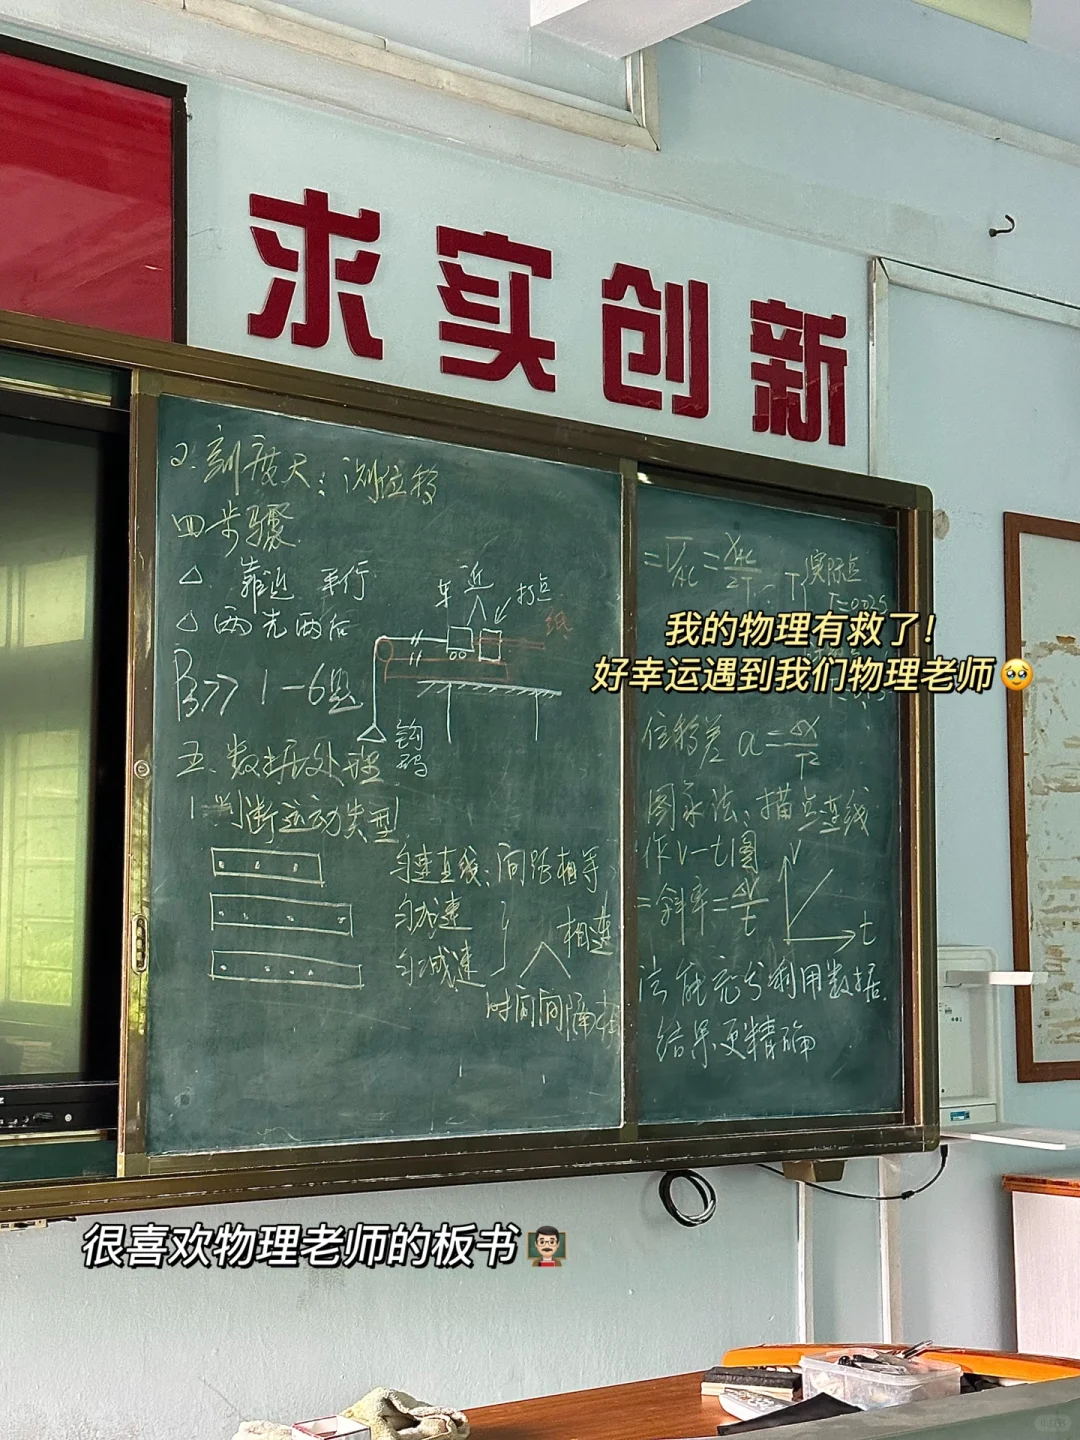 求实创新
2.刻度尺:测位移
四步骤
△ 靠近 平行
车 近 打点
纸
△ 两先两后
B>> 1-6题
钩码
五.数据处理
1.判断运动类型
匀速直线:间距相等
匀加速
匀减速
相连
时间间隔
=V̅AC=XAC/2T
T
实际点
T=0.02s
我的物理有救了!
好幸运遇到我们物理老师🥹
位移差 a=ΔX/T²
图象法:描点连线
作v-t图
v
=斜率=ΔV/t
t
法能充分利用数据.
结果更精确
很喜欢物理老师的板书👨🏻‍🏫
小红书